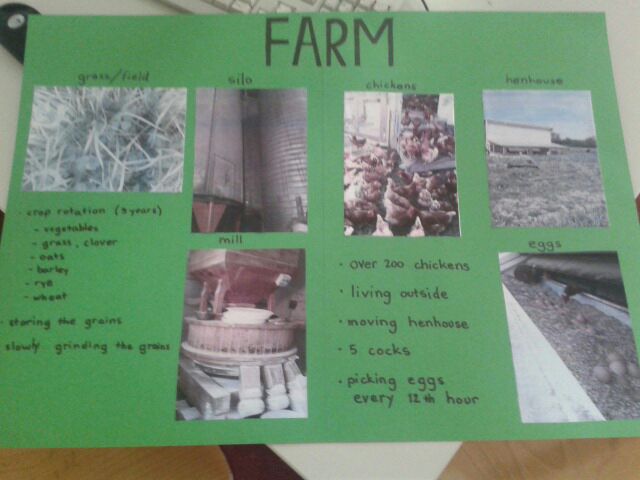 FARM
grass/field
silo
chickens
henhouse
· crop rotation (9 years)
- vegetables
- grass, clover
- oats
- barley
- rye
- wheat
· storing the grains
· slowly grinding the grains
mill
· over 200 chickens
· living outside
· moving henhouse
· 5 cocks
· picking eggs
every 12th hour
eggs